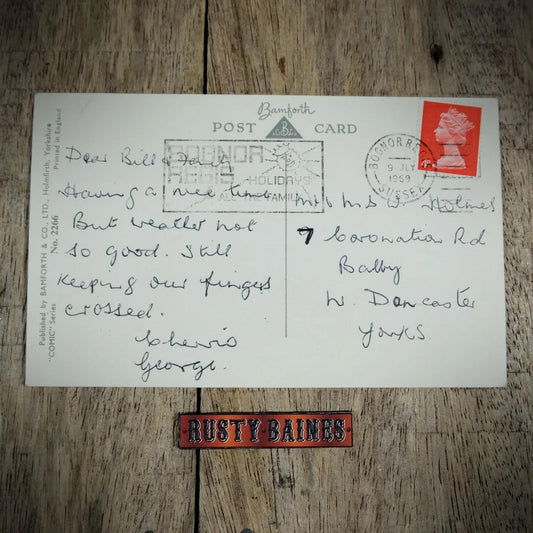 Bamforth
POST CARD
BOGNOR
REGIS
HOLIDAYS
ALL THE FAMILY
BOGNOR REGIS
9 JLY
1969
SUSSEX
4D
Dear Bill &
Having a nice time
But weather not
so good. Still
keeping our fingers
crossed.
Cherio
George.
Mr & Mrs W Holmes
7 Coronation Rd
Balby
Nr Doncaster
Yorks.
Published by BAMFORTH & CO., LTD., Holmfirth, Yorkshire
"COMIC" Series No. 2266 Printed in England
RUSTY·BAINES